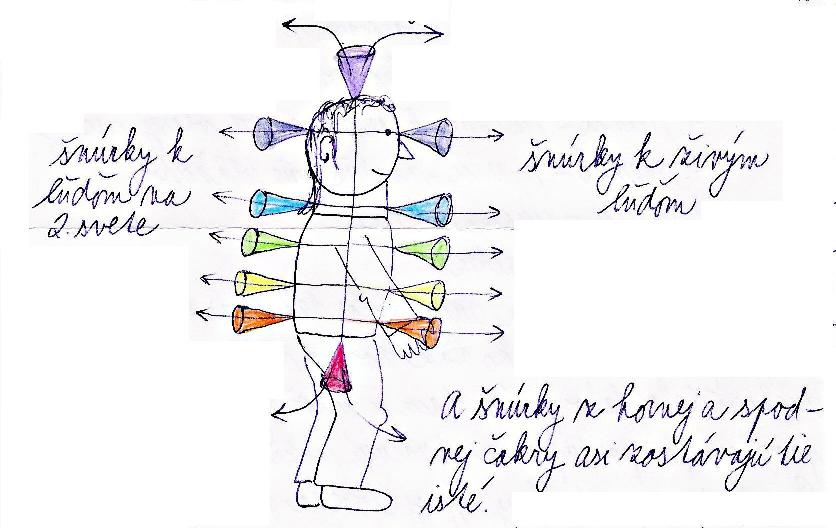 šnúrky k
ľuďom na
2. svete
šnúrky k živým
ľuďom
A šnúrky z hornej a spod-
nej čakry asi zostávajú tie
isté.